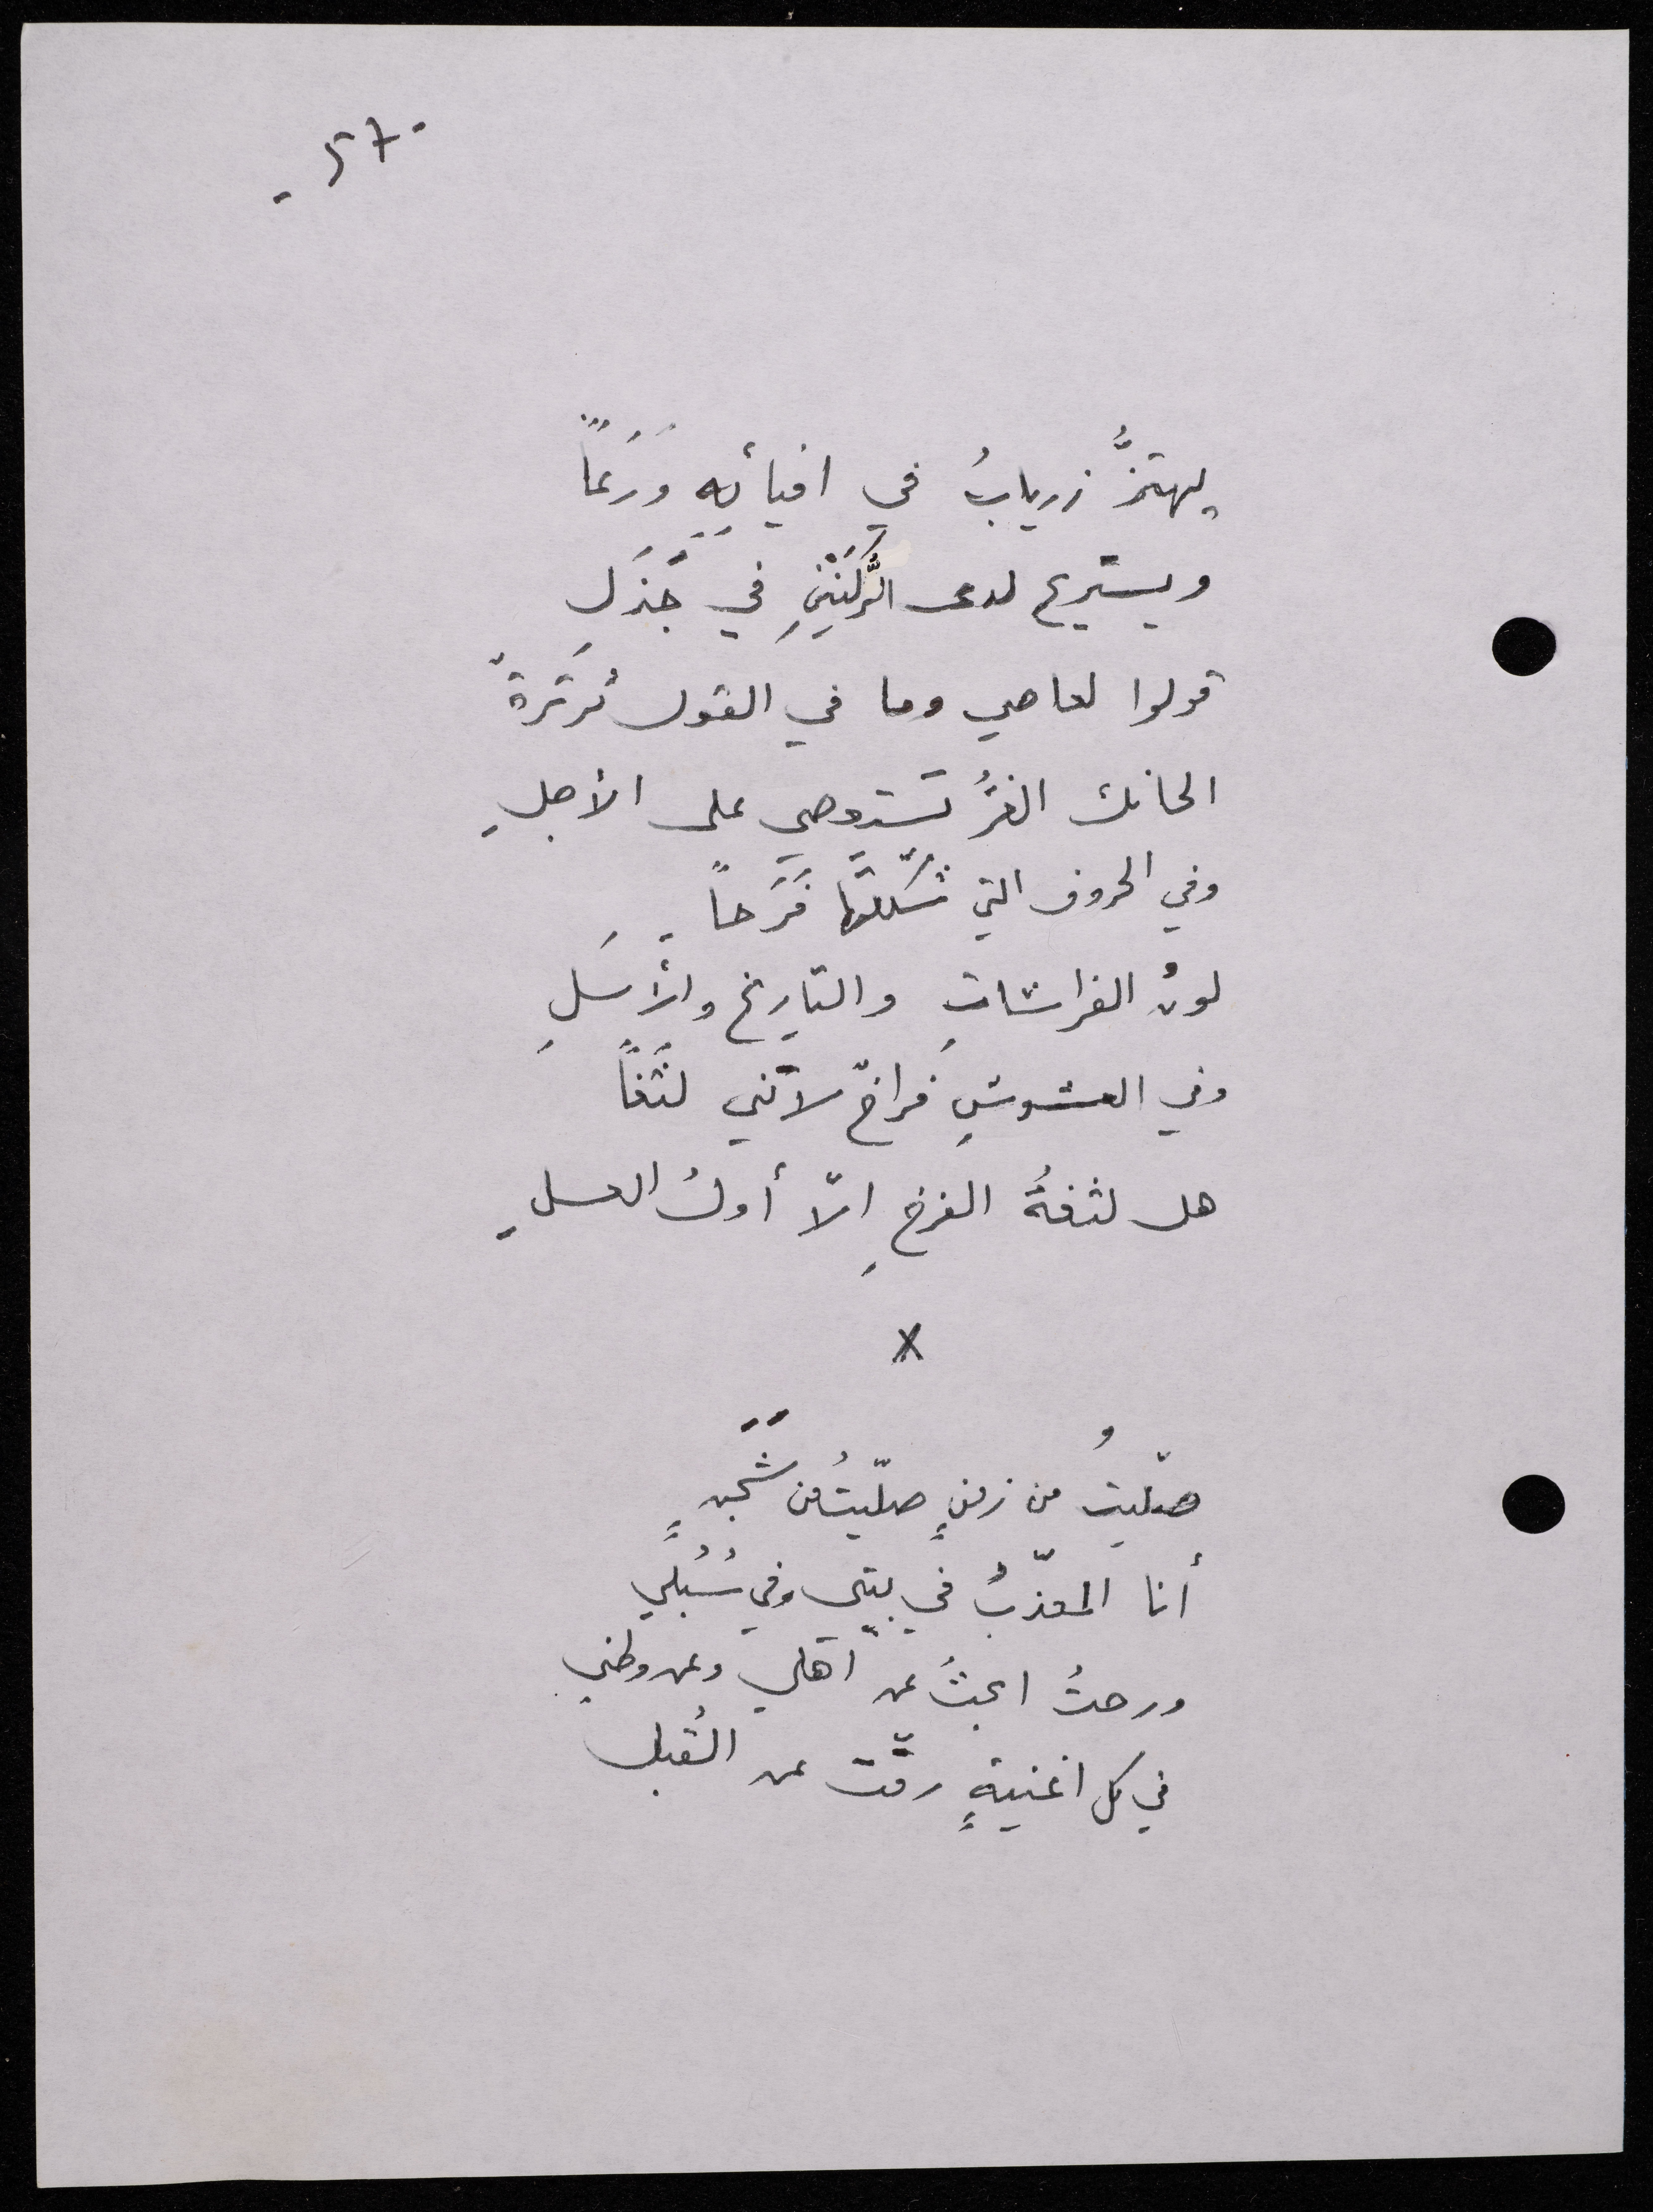 - 57 -
يهتزُّ زريابُ في افيائِهِ وَرَعاً
ويستريح لدى الرُّكنَيْنِ في جَذَلِ
قولوا لعاصي وما في القول ثرثرةٌ
الحانك الغرُّ تستوصي على الأجلِ
وفي الحروف التي شكّلتَها فَرَحاً
لونُ الفراشاتِ والتاريخِ والأسَلِ
وفي العشوشِ فراخٌ لاَتني لَثَغاً
هل لثغةُ الفرخِ الّا أولُ العسلِ
x
صلّيتُ من زمنٍ صلّيتُ من شَجَنٍ
أنا المعذّبُ في بيتي وفي سُبُلي
ورحتُ ابحثُ عن اهلي وعن وطني
في كل اغنيةٍ رقَّت عن القُبلِ